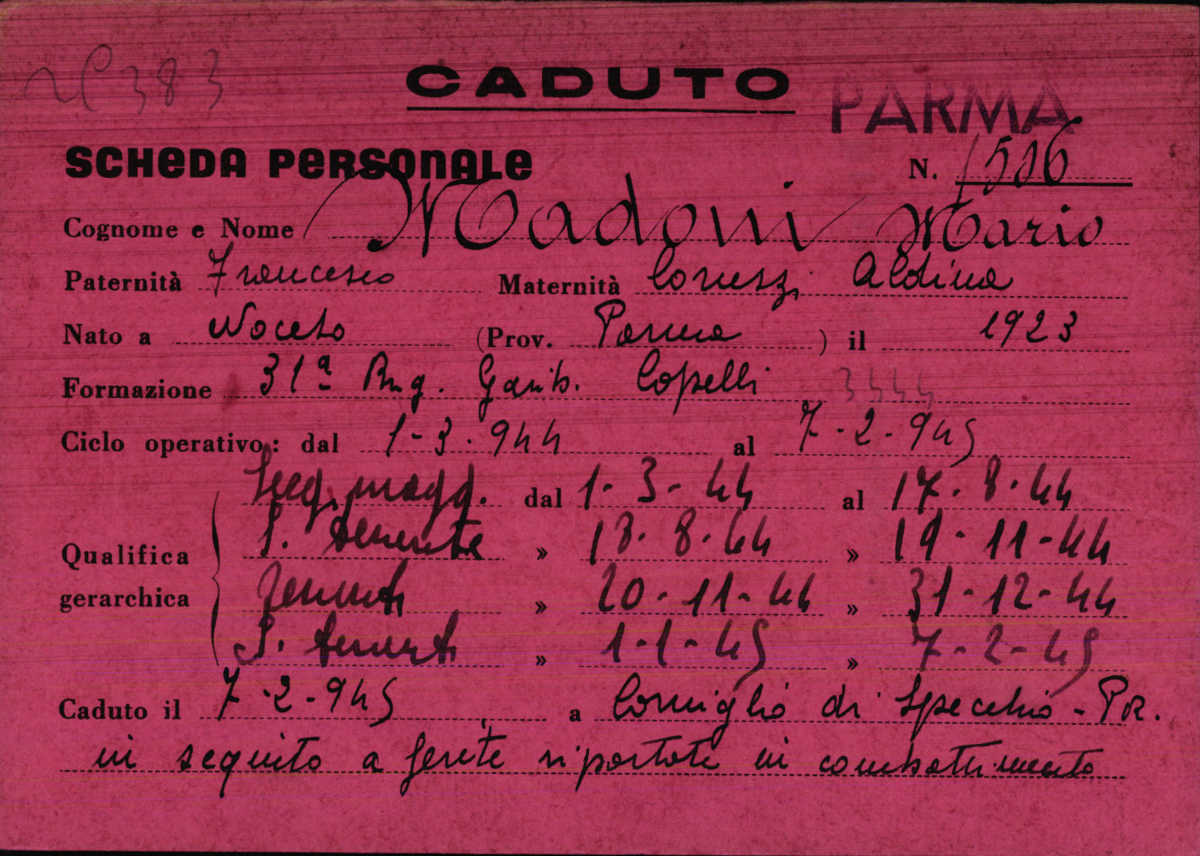 nº 383
CADUTO
PARMA
SCHEDA PERSONALE N. 1506
Cognome e Nome Madoni Mario
Paternità Francesco Maternità Coruzzi Aldina
Nato a Noceto (Prov. Parma ) il 1923
Formazione 31ª Brig. Garib. Copelli 3444
Ciclo operativo: dal 1-3-944 al 7-2-945
Qualifica gerarchica
Serg. magg. dal 1-3-44 al 17-8-44
S. Tenente » 18-8-44 » 19-11-44
Tenente » 20-11-44 » 31-12-44
S. Tenente » 1-1-45 » 7-2-45
Caduto il 7-2-945 a Corniglio di Specchio - Pr.
in seguito a ferite riportate in combattimento